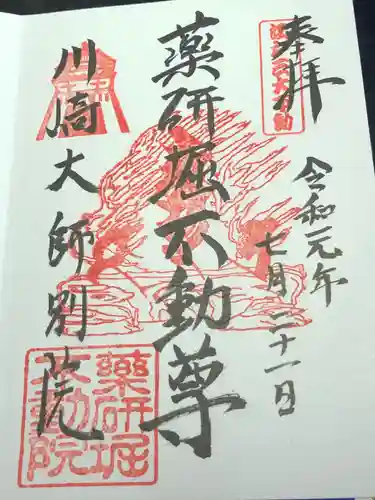 奉拝
江戸三大不動
令和元年
七月二十一日
薬研堀不動尊
川崎大師別院
薬研堀
不動院